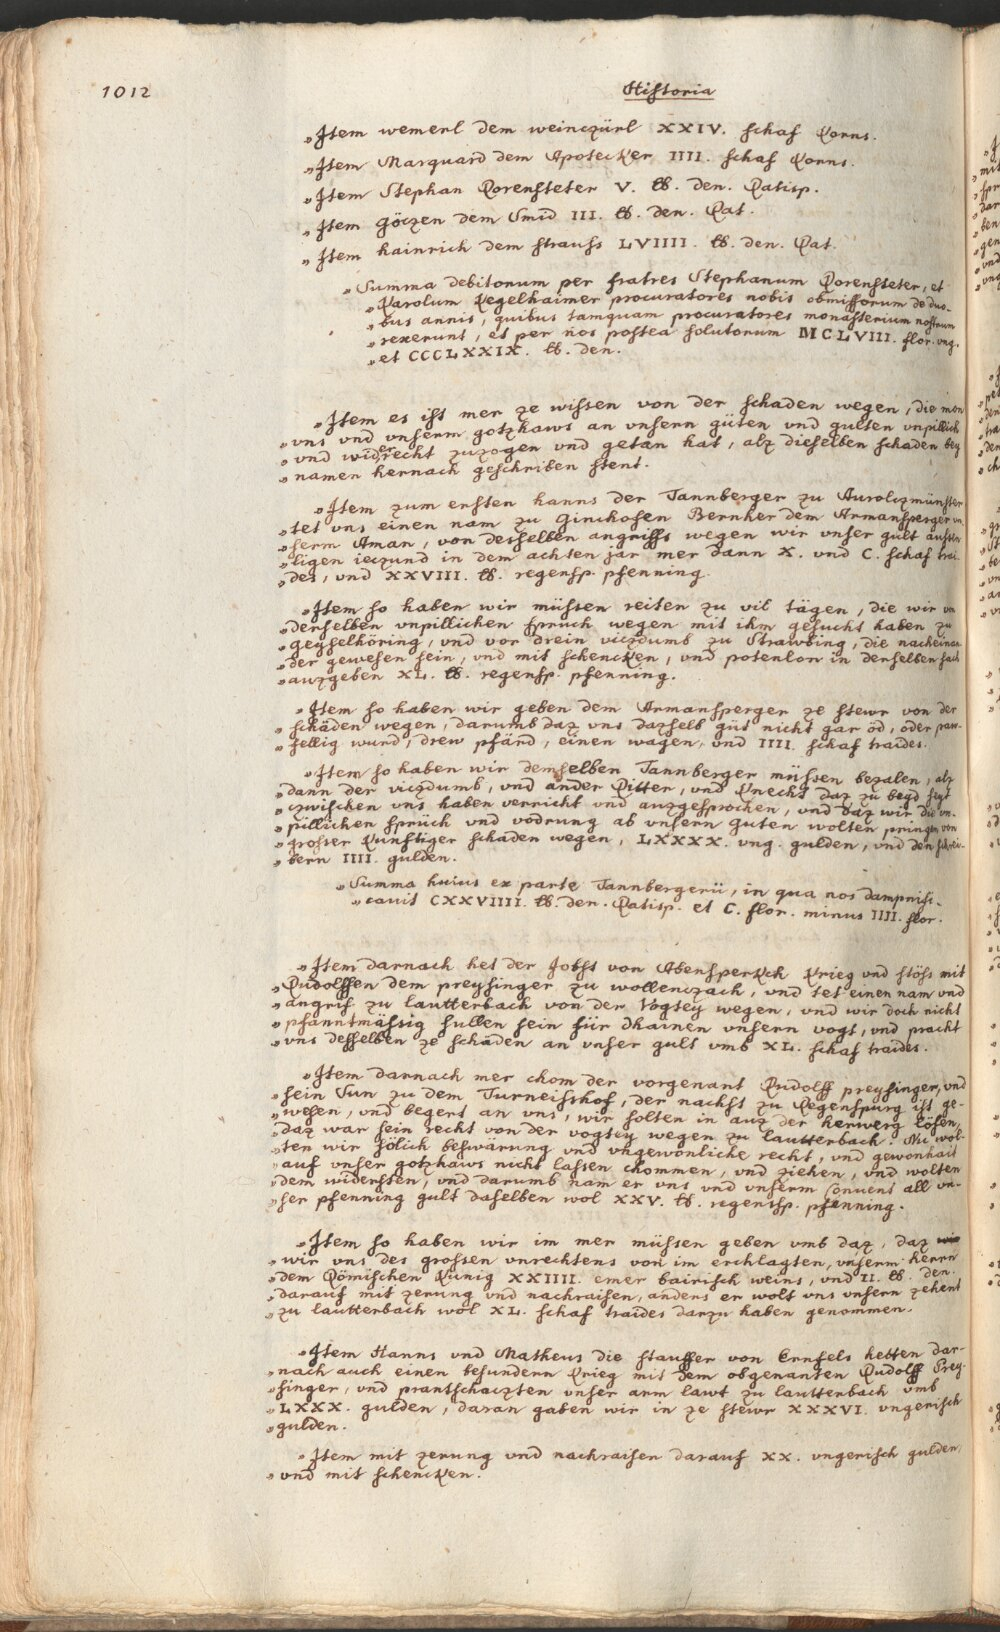 1012
Historia
„Item wernerl dem weinczürl XXIV. schaf Korns.
„Item Marquard dem Apotecker IIII. schaf Korns.
„Item Stephan Rorensteter V. lb. den. Ratisp.
„Item Göczen dem Smid III. lb. den. Rat.
„Item hainrich dem strauss LVIIII. lb. den. Rat.
„Summa debitorum per fratres Stephanum Rorensteter, et
„Karolum Kegelhaimer procuratores nobis obmissorum de duo-
„bus annis, quibus tamquam procuratores monasterium nostrum
„rexerunt, et per nos postea solutorum MCLVIII. flor. ung.
„et CCCLXXIX. lb. den.
„Item es ist mer ze wissen von der schaden wegen, die man
„uns und unserm gotzhaws an unsern güten und gulten unpillich
„und widerrecht zuzogen und getan hat, alz dieselben schaden bey
„namen hernach geschriben stent.
„Item zum ersten hanns der Tannberger zu Aurolczmünster
„tet uns einen nam zu Ginckofen Bernher dem Armansperger un-
„serm Aman, von desselben angriffs wegen wir unser gult
„ligen ieczund in dem achten jar mer dann X. und C. schaf trai-
„des, und XXVIII. lb. regensp. pfenning.
„Item so haben wir müssen reiten zu vil tägen, die wir von
„derselben unpillichen spruch wegen mit ihm gesucht haben zu
„geyselhöring, und vor drein viczdumb zu Strawbing, die nacheinan-
„der gewesen sein, und mit schencken, und potenlon in derselben sach
„auzgeben XL. lb. regensp. pfenning.
„Item so haben wir geben dem Armansperger ze stewr von der
„schäden wegen, darumb daz uns dazselb gut nicht gar öd, oder paw-
„fellig wurd, drew pfärd, einen wagen, und IIII. schaf traides.
„Item so haben wir demselben Tannberger müssen bezalen, alz
„dann der viczdumb, und ander Ritter, und Knecht daz zu beyd seyt
„czwischen uns haben verricht und auzgesprochen, und daz wir die un-
„pillichen sprüch und vodrung ab unsern guten wolten pringen von
„grosser Kunftiger schäden wegen, LXXXX. ung. gulden, und den schrei-
„bern IIII. gulden.
„Summa huius ex parte Tannbergerii, in qua nos dampnifi-
„cavit CXXVIIII. lb. den. Ratisp. et C. flor. minus IIII. flor.
„Item darnach het der Jobst von Abensperkch Krieg und stöss mit
„Rudolffen dem preysinger zu wollenczach, und tet einen nam und
„angrif zu lautterbach von der Vogtey wegen, und wir doch nicht
„pfanntmässig sullen sein für dhainen unsern vogt, und pracht
„uns desselben ze schäden an unser gult umb XL. schaf traides.
„Item darnach mer chom der vorgenant Rudolff preysinger, und
„sein Sun zu dem Turneisshof, der nachst zu Regenspurg ist ge-
„wesen, und begert an uns, wir solten in auz der herwerg lösen,
„daz war sein recht von der vogtey wegen zu lautterbach. Nu wol-
„ten wir sölich beswärung und ungewonliche recht, und gewonhait
„auf unser gotzhaws nicht lassen chommen, und ziehen, und wolten
„dem widersten, und darumb nam er uns und unserm Convent all un-
„ser pfenning gult daselben wol XXV. lb. regensp. pfenning.
„Item so haben wir im mer müssen geben umb daz, daz
„wir uns des grossen unrechtens von im erchlagten, unserm herrn
„dem Römischen Kunig XXIIII. emer bairisch weins, und II. lb. den.
„darauf mit zerung und nachraisen, anders er wolt uns unsern zehent
„zu lautterbach wol XL. schaf traides darzu haben genommen.
„Item Hanns und Matheus die stauffer von Ernfels hetten dar-
„nach auch einen besundern Krieg mit dem obgenanten Rudolff Prey-
„singer, und prantschaczten unser arm lawt zu lautterbach umb
„LXXX. gulden, daran gaben wir in ze stewr XXXVI. ungerisch
„gulden.
„Item mit zerung und nachraisen darauf XX. ungerisch gulden,
„und mit schencken.